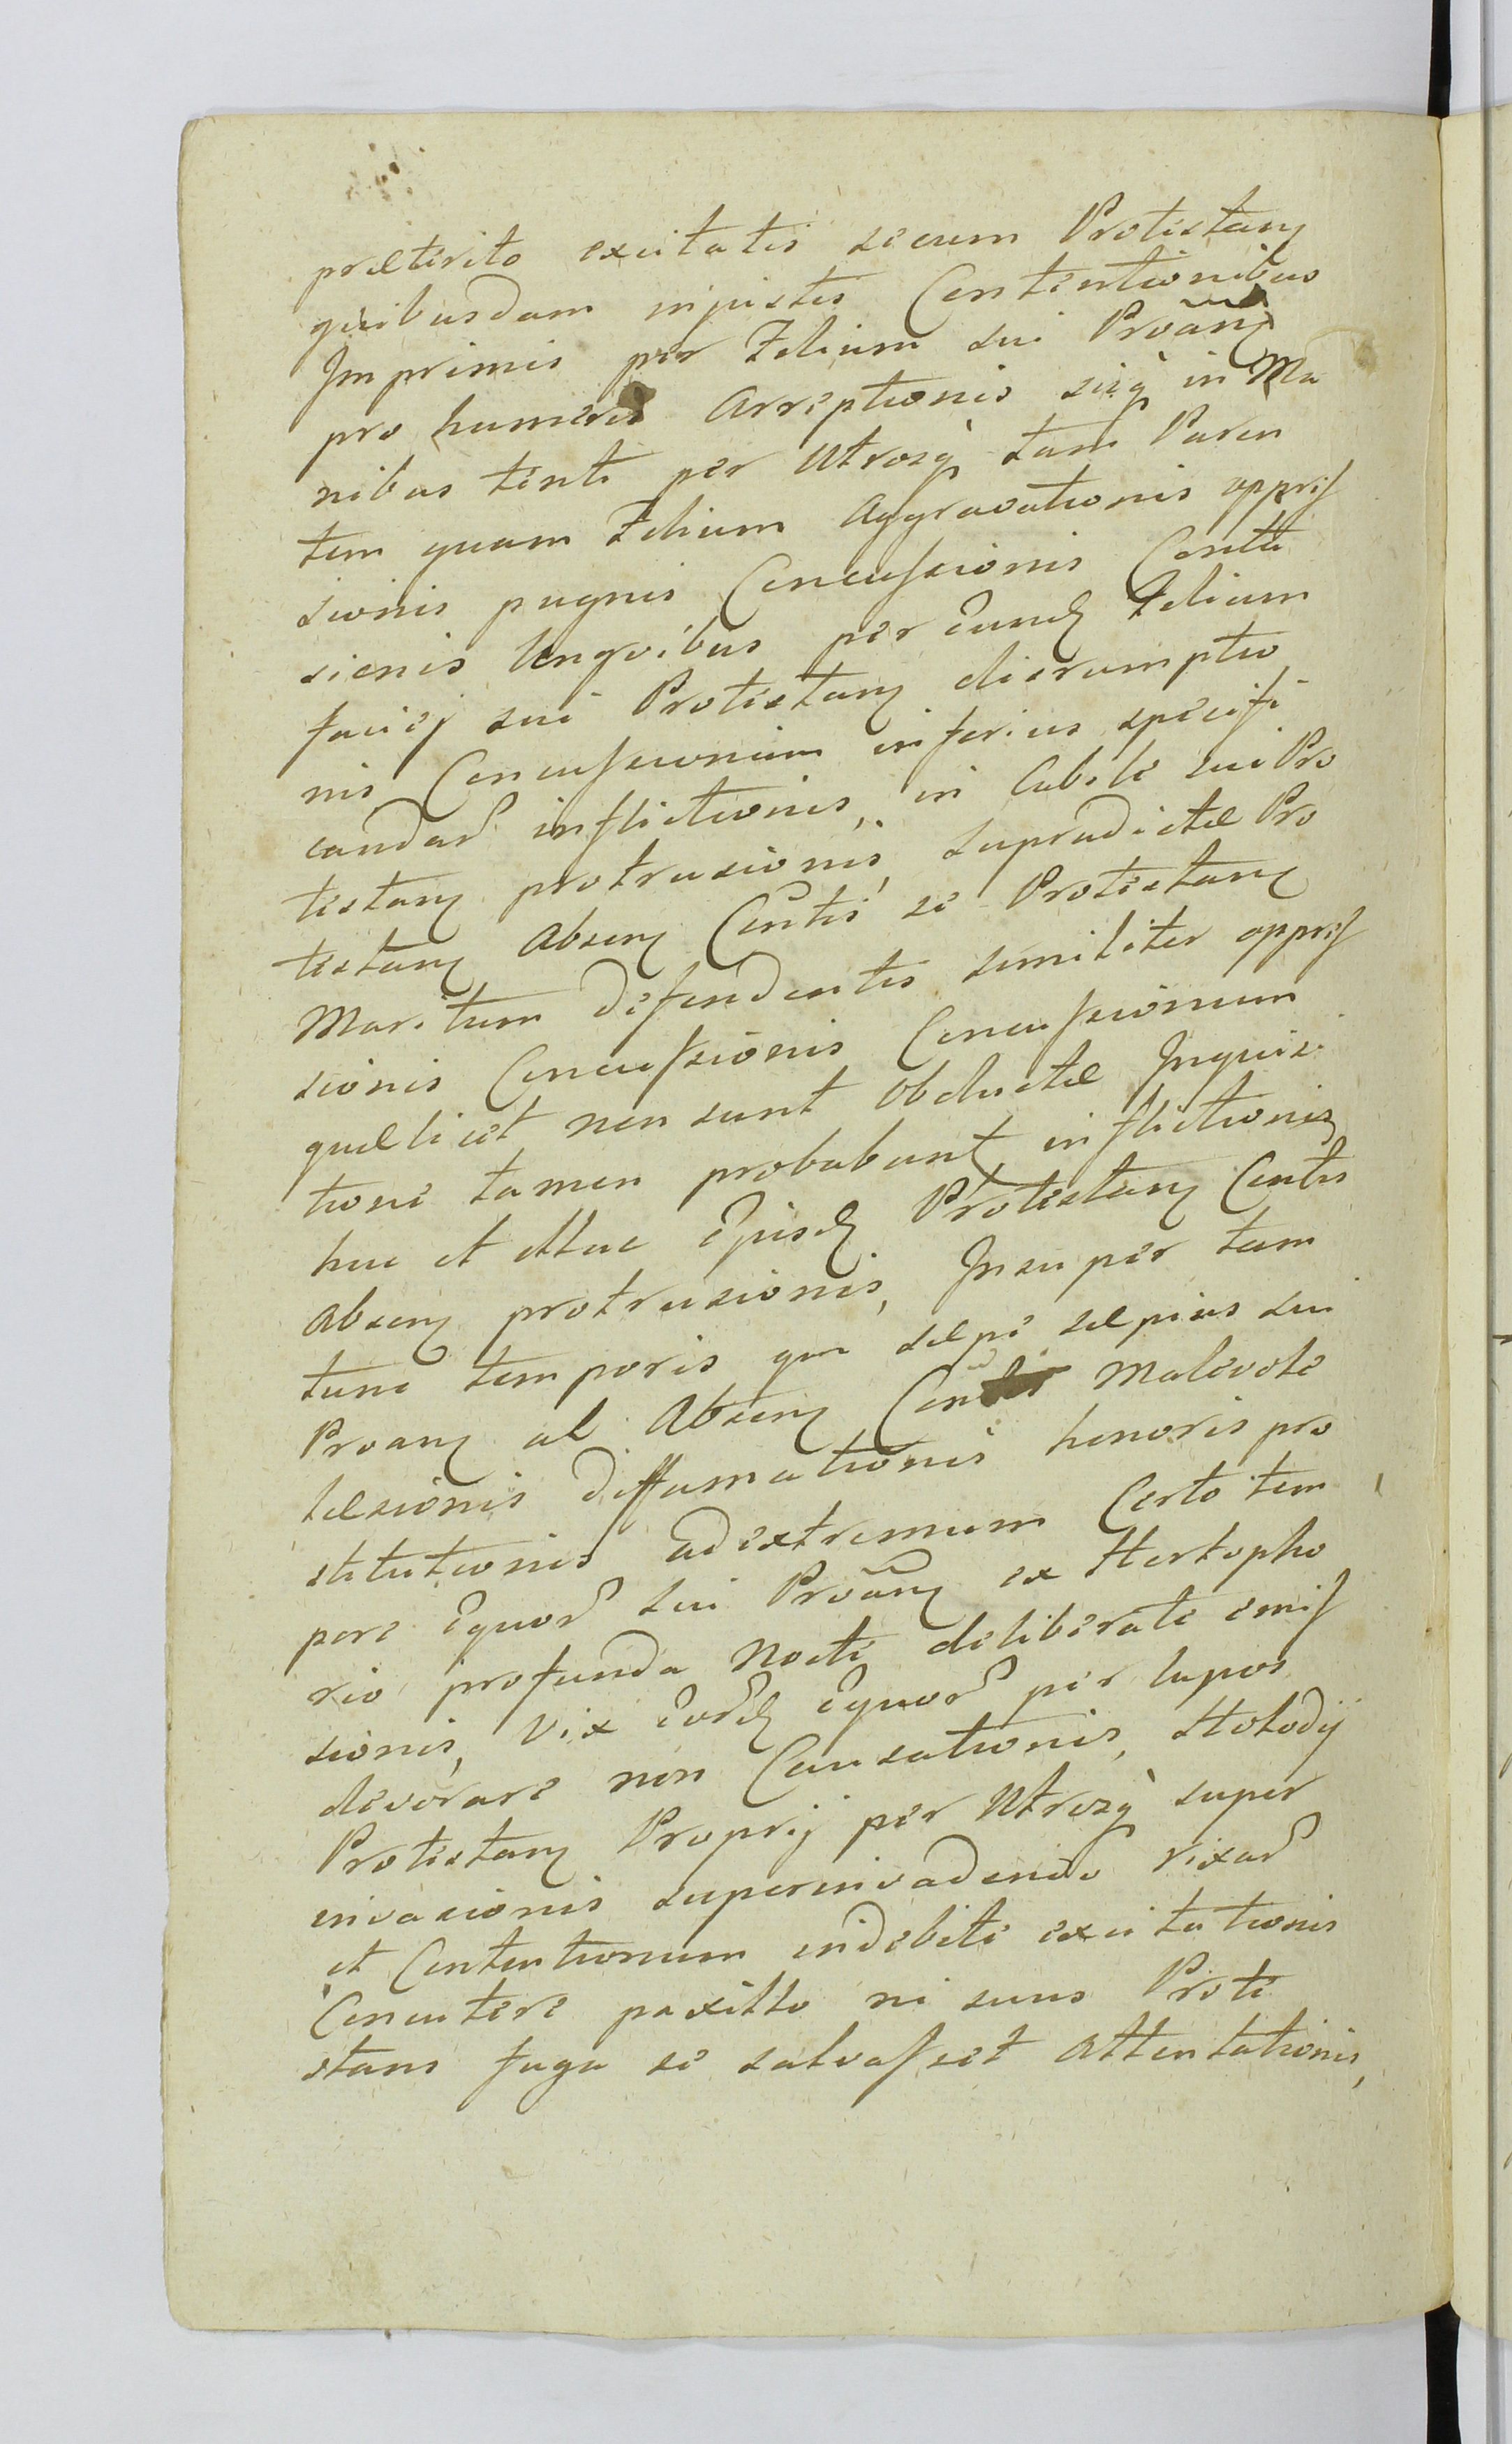 præterito excitatis secum Protestanȝ
quibusdam injustis Contentionibus
Imprimis per Filium sui Proãnȝ
pro humeris Arreptionis sicq̀ in Ma
nibus tenti per Utrosq̀ tam Paren
tem quam Filium Aggravationis oppreſ
sionis pugnis Concuſsionis Contu
sionis Ungvibus per Eundȝ Filium
faciej sui Protestanȝ disrumptio
nis Concuſsionum inferius specifi
candar̃ inflictionis, in Cubile sui Pro
testanȝ protrusionis, supradictæ Pro
testanȝ Absenȝ Cõntis se Protestanȝ
Maritum defendentis similiter oppreſ
sionis Concuſsionis Concuſsionum
quæ licet non sunt obductæ Inquisi
tione tamen probabunt inflictionis
huc et illuc Ejusdȝ Protestanȝ Contis
Absenȝ protrusionis, Insuper tam
tunc temporis qm sæpe sæpius sui
Proanȝ al Absenȝ malevole
læsionis diffamationis honoris pro
stitutionis ad extremum Certo tem
pore Equor̃ sui Proãnȝ ex
rio profunda nocte deliberate emiſ
sionis, vix Eor̃dȝ Equor̃ per lupos
devorare non Causationis, Stodoły
Protestanȝ Proprij per Utrosq̀ super
invasionis superinvadendo rixar̃
et Contentionum indebite excitationis
Concutere paxillo ni suus Prote
stans fuga se salvaſset Attentationis,